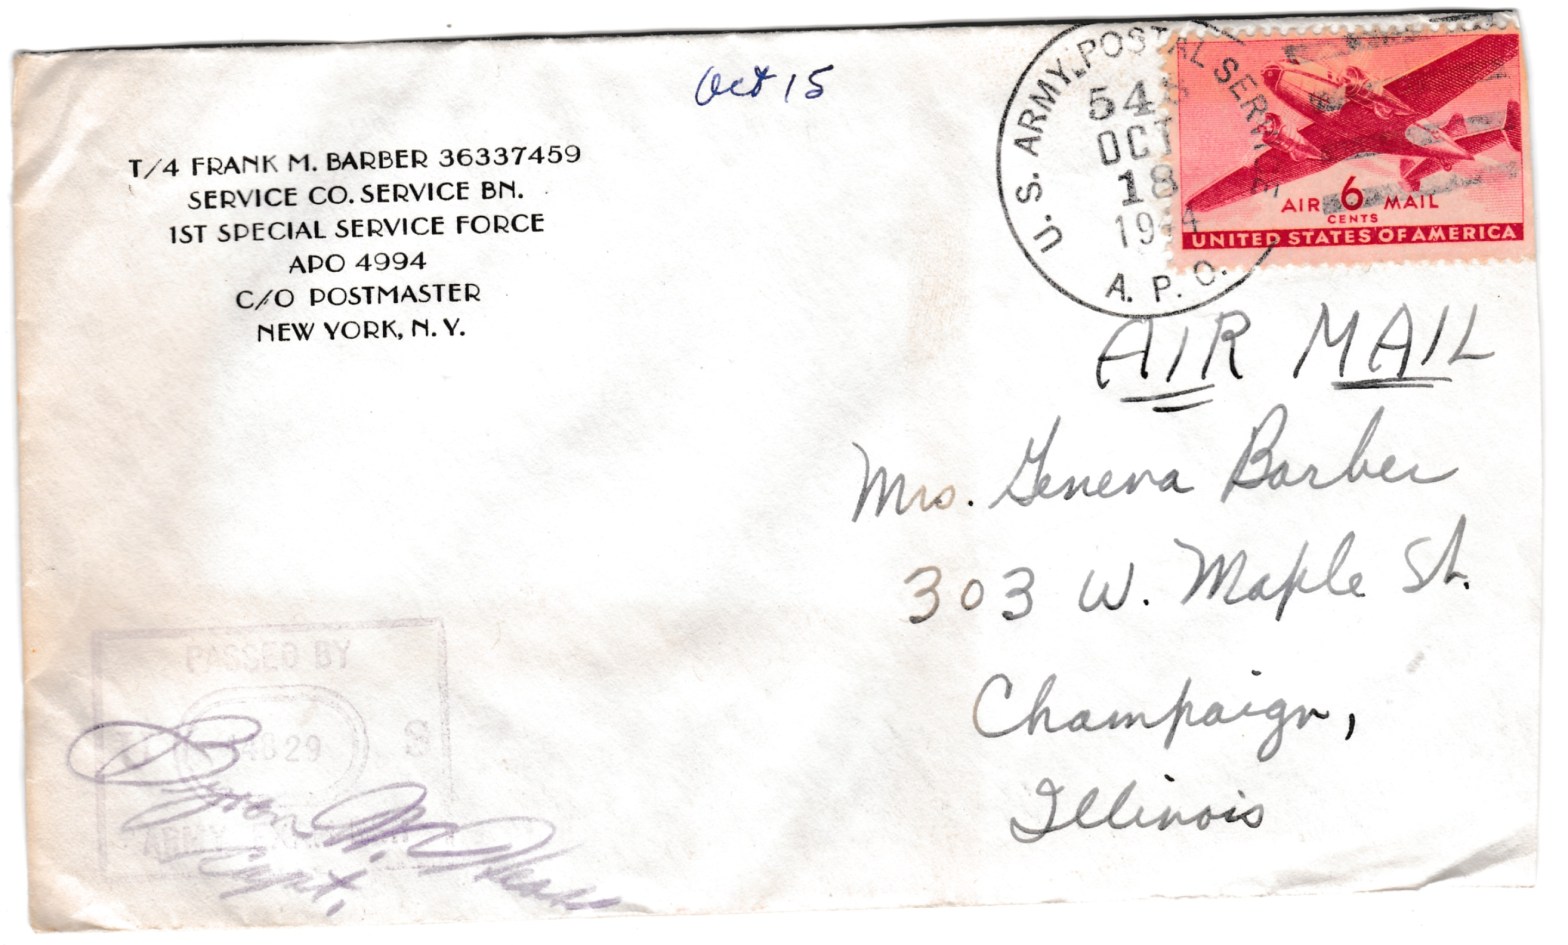 Oct 15
T/4 FRANK M. BARBER 36337459
SERVICE CO. SERVICE BN.
1ST SPECIAL SERVICE FORCE
APO 4994
C/O POSTMASTER
NEW YORK, N. Y.
U. S. ARMY POSTAL SERVICE
OCT
18
1944
A. P. O.
AIR 6 MAIL
CENTS
UNITED STATES OF AMERICA
AIR MAIL
Mrs. Geneva Barber
303 W. Maple St.
Champaign,
Illinois
PASSED BY
S
ARMY EXAMINER
Byron W.
Capt.